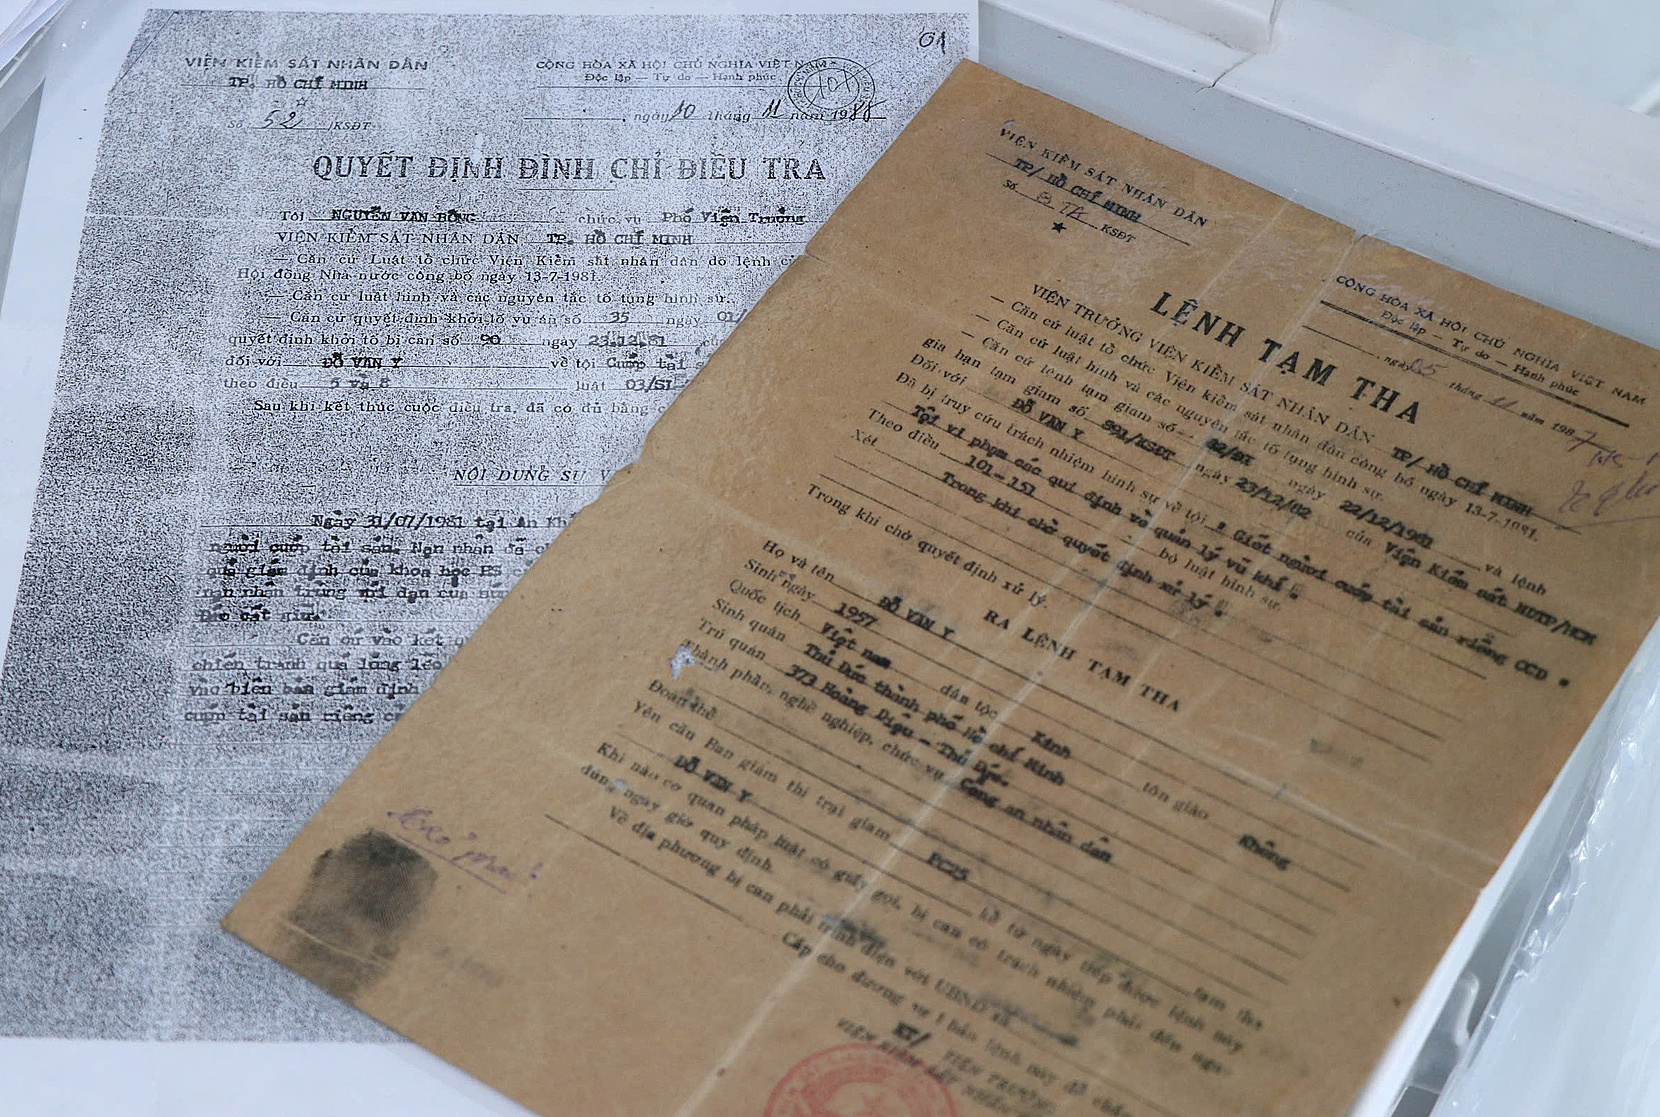 01
VIỆN KIỂM SÁT NHÂN DÂN
TP. HỒ CHÍ MINH
Số 52 /KSĐT
CỘNG HÒA XÃ HỘI CHỦ NGHĨA VIỆT NAM
Độc lập — Tự do — Hạnh phúc
, ngày 10 tháng 11 năm 1985
QUYẾT ĐỊNH ĐÌNH CHỈ ĐIỀU TRA
Tôi NGUYỄN VĂN BÔNG chức vụ Phó Viện Trưởng
VIỆN KIỂM SÁT NHÂN DÂN TP. HỒ CHÍ MINH
— Căn cứ Luật tổ chức Viện Kiểm sát nhân dân do lệnh
Hội đồng Nhà nước công bố ngày 13-7-1981.
— Căn cứ luật hình và các nguyên tắc tố tụng hình sự.
— Căn cứ quyết định khởi tố vụ án số 35 ngày 01/
quyết định khởi tố bị can số 90 ngày 23.12.81
đối với ĐỖ VĂN Y về tội Cướp tài
theo điều 5 và 8 luật 03/
Sau khi kết thúc cuộc điều tra, đã có đủ bằng
NỘI DUNG SỰ
Ngày 31/07/1981 tại An
người cướp tài sản. Nạn nhân đã
quả giám định của khoa học
nạn nhân trúng
Căn cứ vào kết
vào biên bản giám định
cướp tài sản riêng
VIỆN KIỂM SÁT NHÂN DÂN
TP/ HỒ CHÍ MINH
Số 8 TA KSĐT
CỘNG HÒA XÃ HỘI CHỦ NGHĨA VIỆT NAM
Độc lập — Tự do — Hạnh phúc
, ngày 05 tháng 11 năm 1987
LỆNH TẠM THA
VIỆN TRƯỞNG VIỆN KIỂM SÁT NHÂN DÂN TP/ HỒ CHÍ MINH
— Căn cứ luật tổ chức Viện kiểm sát nhân dân công bố ngày 13-7-1981.
— Căn cứ luật hình và các nguyên tắc tố tụng hình sự.
— Căn cứ lệnh tạm giam số 92/81 ngày 22/12/1981 và lệnh
gia hạn tạm giam số 891/KSĐT ngày 23/12/82 của Viện Kiểm sát NDTP/HCM
Đối với ĐỖ VĂN Y
Đã bị truy cứu trách nhiệm hình sự về tội " Giết người cướp tài sản riêng CCD "
Tội vi phạm các qui định về quản lý vũ khí "
Theo điều 101-151 bộ luật hình sự.
Xét Trong khi chờ quyết định xử lý.
Trong khi chờ quyết định xử lý.
RA LỆNH TẠM THA
Họ và tên ĐỖ VĂN Y
Sinh ngày 1957
Quốc tịch Việt nam dân tộc Kinh tôn giáo Không
Sinh quán Thủ Đức thành phố Hồ chí Minh
Trú quán 373 Hoàng Diệu - Thủ Đức.
Thành phần, nghề nghiệp, chức vụ Công an nhân dân
Đoàn thể
Yêu cầu Ban giám thị trại giam PC25 tạm tha
ĐỖ VĂN Y kể từ ngày tiếp được lệnh này
Khi nào cơ quan pháp luật có giấy gọi, bị can có trách nhiệm phải đến ngay
đúng ngày giờ quy định.
Về địa phương bị can phải trình diện với UBND xã
Cấp cho đương sự 1 bản lệnh này để
KT/ VIỆN TRƯỞNG
VIỆN KIỂM SÁT NHÂN